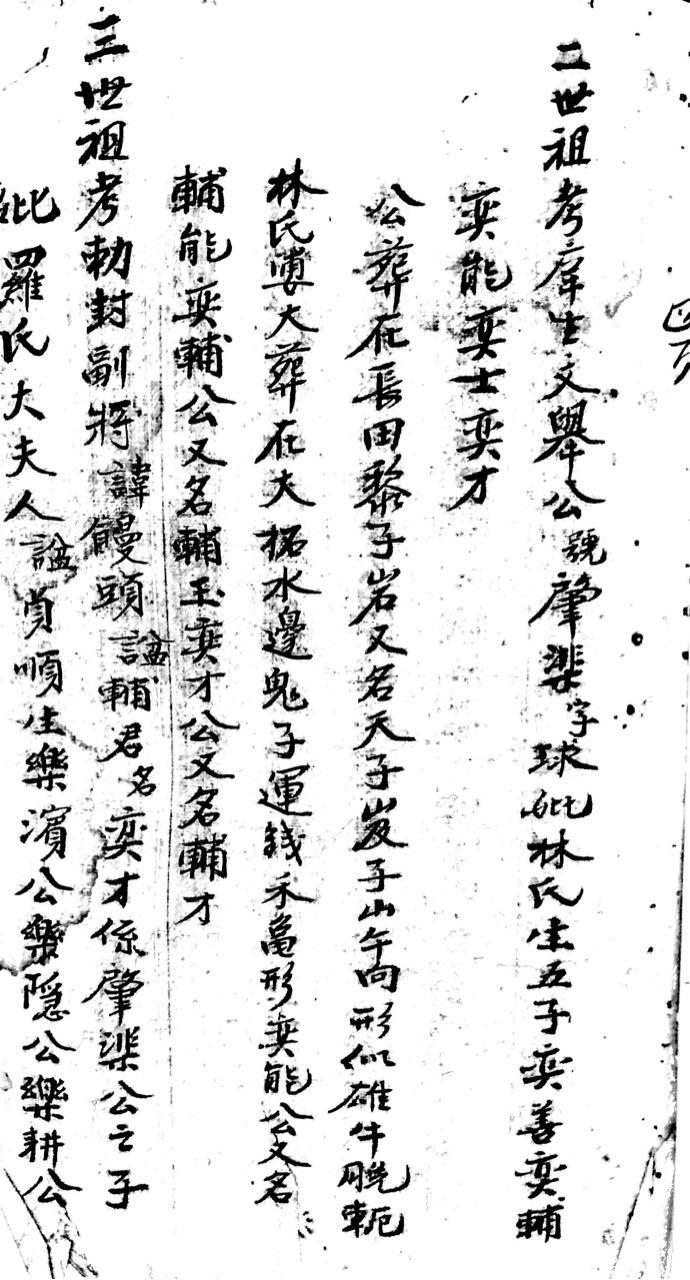 四頁
二世祖考庠生文舉公號肇渠字球妣林氏生五子奕善奕輔
奕能奕士奕才
公葬在長田黎子岩又名天子岌子山午向形似雄牛脫軛
林氏婆大葬在大柘水邊鬼子運錢禾龜形奕能公又名
輔能奕輔公又名輔玉奕才公又名輔才
三世祖考勅封副將諱饅頭諡輔君名奕才係肇渠公之子
妣羅氏大夫人諡貞順生樂濱公樂隱公樂耕公